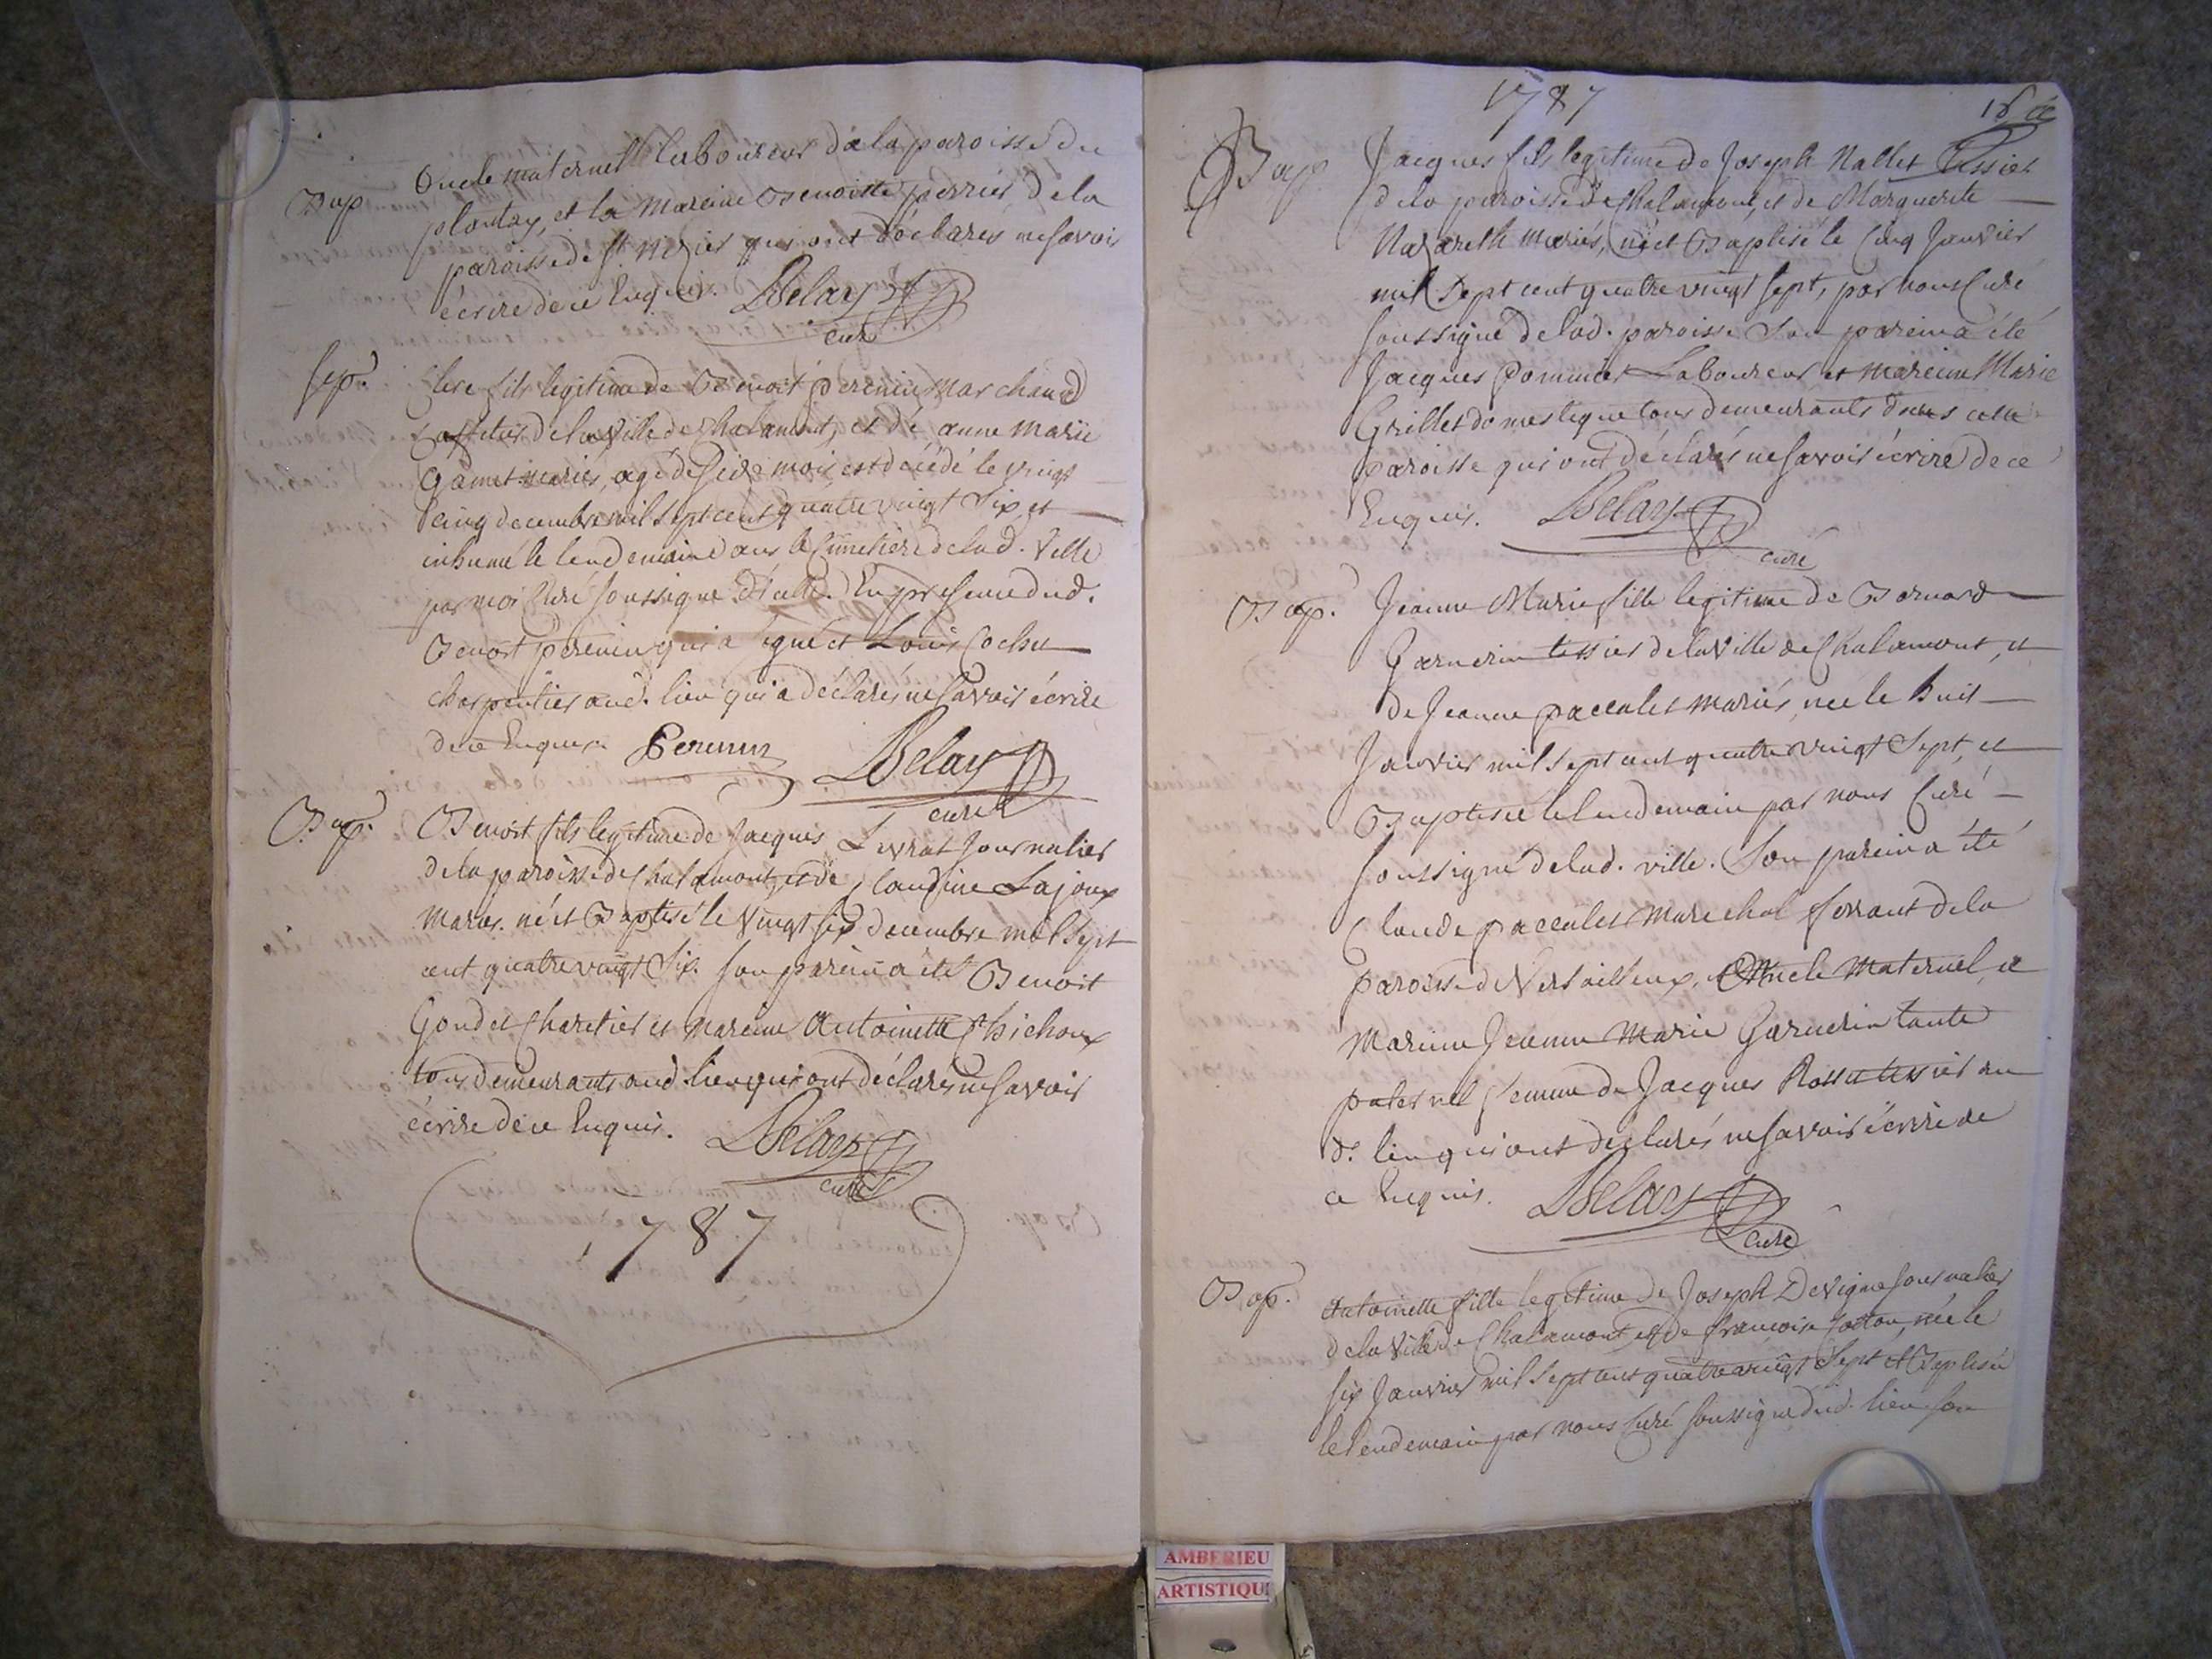 Bap
Oncle maternel laboureur de la paroisse du
plantay, et la Mareine Benoitte perrier, de la
paroisse de St Nizier qui ont déclarés ne savoir
écrire de ce Enquis. Delay
curé
Sep.
fils legitime de Benoit perenin Marchand
de la Ville de Chalamont, et de anne Marie
Gamet mariés, agé de mois, est décédé le vingt
cinq decembre mil sept cent quatre vingt Six et
inhumé le lendemain dans le Cimetiere de lad. Ville
par moi Curé soussigné d'icelle. En presence dud.
Benoit perenin qui a signé et Louis Cochet
charpentier aud. lieu qui a déclarés ne savoir écrire
de ce Enquis. Perenin Delay
curé
Bap.
Benoit fils legitime de Jacques Livrat Journalier
de la paroisse de Chalamont, et de Claudine Lajoux
mariés. né et Baptisé le vingt six decembre mil sept
cent quatre vingt Six. son parein a été Benoit
Gondet Charetier et mareine Antoinette Chichoux
tous demeurants aud. lieu qui ont déclarés ne savoir
écrire de ce Enquis. Delay
curé
1787
1787
Bap
Jacques fils legitime de Joseph Nallet Tissier
de la paroisse de Chalamont, et de Marguerite
Nazareth mariés, né et Baptisé le Cinq Janvier
mil sept cent quatre vingt sept, par nous Curé
soussigné de lad. paroisse Son parein a été
Jacques Pommier Laboureur et mareine Marie
Grillet domestique tous demeurants dans cette
paroisse qui ont déclarés ne savoir écrire de ce
Enquis. Delay
curé
Bap.
Jeanne Marie fille legitime de Bernard
Garnerin tissier de la Ville de Chalamont, et
de Jeanne paccalet mariés, née le huit
Janvier mil sept cent quatre vingt Sept, et
Baptisée le lendemain par nous Curé
soussigné de lad. ville. Son parein a été
Claude paccalet marechal ferrant de la
paroisse de Versailleux, Oncle Maternel, et
Mareine Jeanne Marie Garnerin tante
paternel femme de Jacques Rosset tissier au
d. lieu qui ont déclarés ne savoir écrire de
ce Enquis. Delay
curé
Bap.
Antoinette fille legitime de Joseph Devigne Journalier
de la Ville de Chalamont et de francoise Cotton, née le
six Janvier mil sept cent quatre vingt Sept et Baptisée
le lendemain par nous Curé soussigné dud. lieu son
AMBERIEU
ARTISTIQU